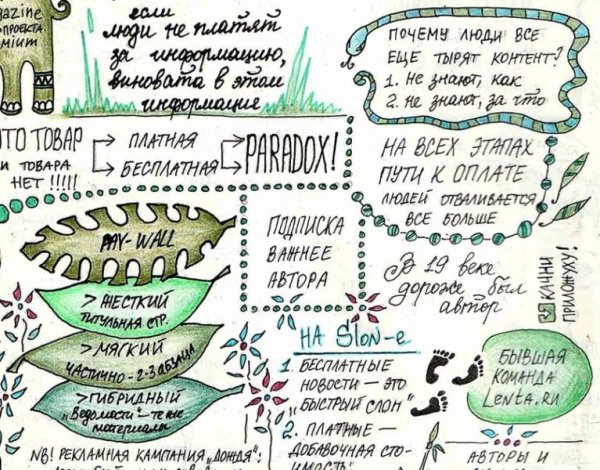 azine
ПРОЕКТА
mium
если
люди не платят
за информацию,
виновата в этом
информация
ПОЧЕМУ ЛЮДИ ВСЕ
ЕЩЕ ТЫРЯТ КОНТЕНТ?
1. НЕ ЗНАЮТ, КАК
2. НЕ ЗНАЮТ, ЗА ЧТО
ЭТО ТОВАР
И ТОВАРА
НЕТ !!!!!
ПЛАТНАЯ
БЕСПЛАТНАЯ
PARADOX!
НА ВСЕХ ЭТАПАХ
ПУТИ К ОПЛАТЕ
ЛЮДЕЙ ОТВАЛИВАЕТСЯ
ВСЕ БОЛЬШЕ
PAY-WALL
> ЖЕСТКИЙ
ТИТУЛЬНАЯ СТР.
> МЯГКИЙ
ЧАСТИЧНО - 2-3 АБЗАЦА
> ГИБРИДНЫЙ
"Ведомости" - те же
материалы
ПОДПИСКА
ВАЖНЕЕ
АВТОРА
В 19 веке
дороже был
автор
КАЧНИ
ПРИЛОЖУХУ!
НА Slon-е
1. БЕСПЛАТНЫЕ
НОВОСТИ - ЭТО
"БЫСТРЫЙ СЛОН"
2. ПЛАТНЫЕ -
ДОБАВОЧНАЯ СТО-
ИМОСТЬ
БЫВШАЯ
КОМАНДА
Lenta.RU
NB! РЕКЛАМНАЯ КАМПАНИЯ "ДОЖДЯ":
АВТОРЫ И